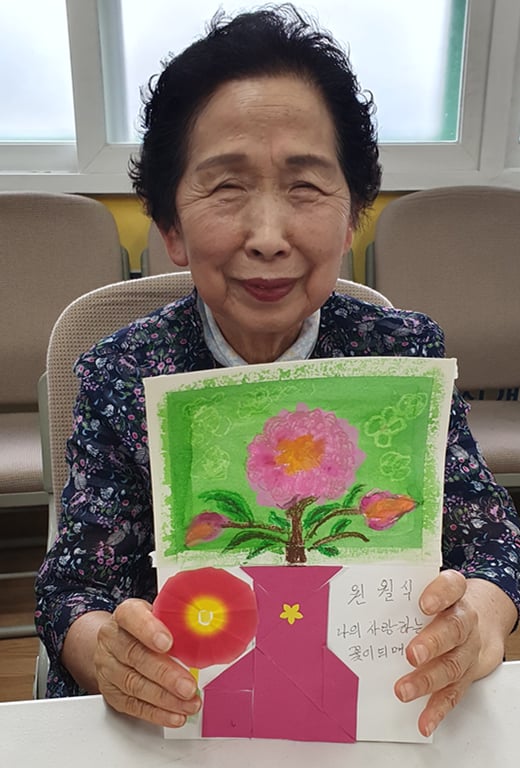 원 월 식
나의 사랑하는
꽃이 되어